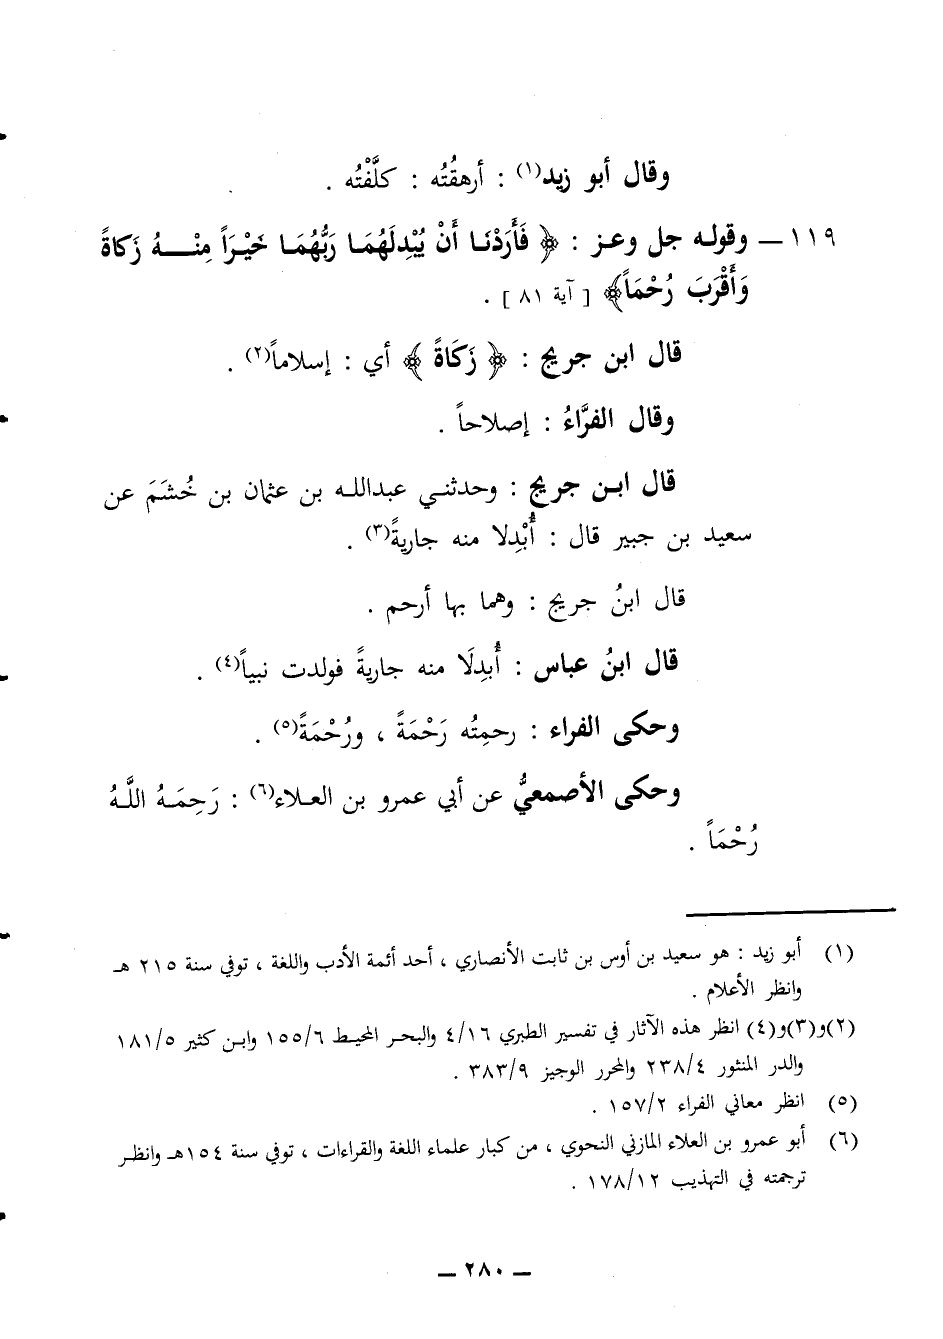 وقال أبو زيد(١) : أرهقُتُه : كلَّفْتُه .
١١٩ — وقوله جل وعز : ﴿ فَأَرَدْنَا أَنْ يُبْدِلَهُمَا رَبُّهُمَا خَيْرَاً مِنْـــهُ زَكاةً
وَأَقْرَبَ رُحْمَاً﴾ [ آية ٨١ ] .
قال ابن جريج : ﴿ زَكَاةً ﴾ أي : إسلاماً(٢) .
وقال الفرَّاءُ : إصلاحاً .
قال ابـن جريج : وحدثنـي عبداللـه بن عثمان بن خُشَمَ عن
سعيد بن جبير قال : أُبْدِلا منه جاريةً(٣) .
قال ابنُ جريج : وهما بها أرحم .
قال ابنُ عباس : أُبدِلَا منه جاريةً فولدت نبياً(٤) .
وحكى الفراء : رحمِتُه رَحْمَةً ، ورُحْمَةً(٥) .
وحكى الأصمعيُّ عن أبي عمرو بن العـلاء(٦) : رَحِمَـهُ اللَّـهُ
رُحْمَاً .
(١) أبو زيد : هو سعيد بن أوس بن ثابت الأنصاري ، أحد أئمة الأدب واللغة ، توفي سنة ٢١٥ هـ
وانظر الأعلام .
(٢)و(٣)و(٤) انظر هذه الآثار في تفسير الطبري ٤/١٦ والبحـر المحيـط ١٥٥/٦ وابـن كثير ١٨١/٥
والدر المنثور ٢٣٨/٤ والمحرر الوجيز ٣٨٣/٩ .
(٥) انظر معاني الفراء ١٥٧/٢ .
(٦) أبو عمرو بن العلاء المازني النحوي ، من كبار علماء اللغة والقراءات ، توفي سنة ١٥٤هـ وانظـر
ترجمته في التهذيب ١٧٨/١٢ .
— ٢٨٠ —